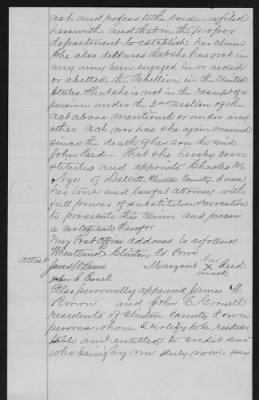 each and proofs to the Record as filed
herewith and that in the proper
department to establish her claim
She also declares that she has not in
any way been engaged in or aided
or abetted the Rebellion in the United
States. That she is not in the receipt of a
pension under the 2nd section of the
act above mentioned or under any
other act nor has she again married
since the death of her son the said
John Reed - That she hereby con-
stitutes and appoints Charles M
Nye of Dewitt Clinton County Iowa
her true and lawful attorney with
full power of substitution & revocation
to prosecute this claim and procure
a certificate therefor
My Post Office address is as follows
Wheatland Clinton Co Iowa
attest
her
James W Margaret X Reed
John C mark
Also personally appeared James W.
and John C.
residents of Clinton County Iowa
persons whom I certify to be respec-
table and entitled to credit and
who being by me duly sworn say